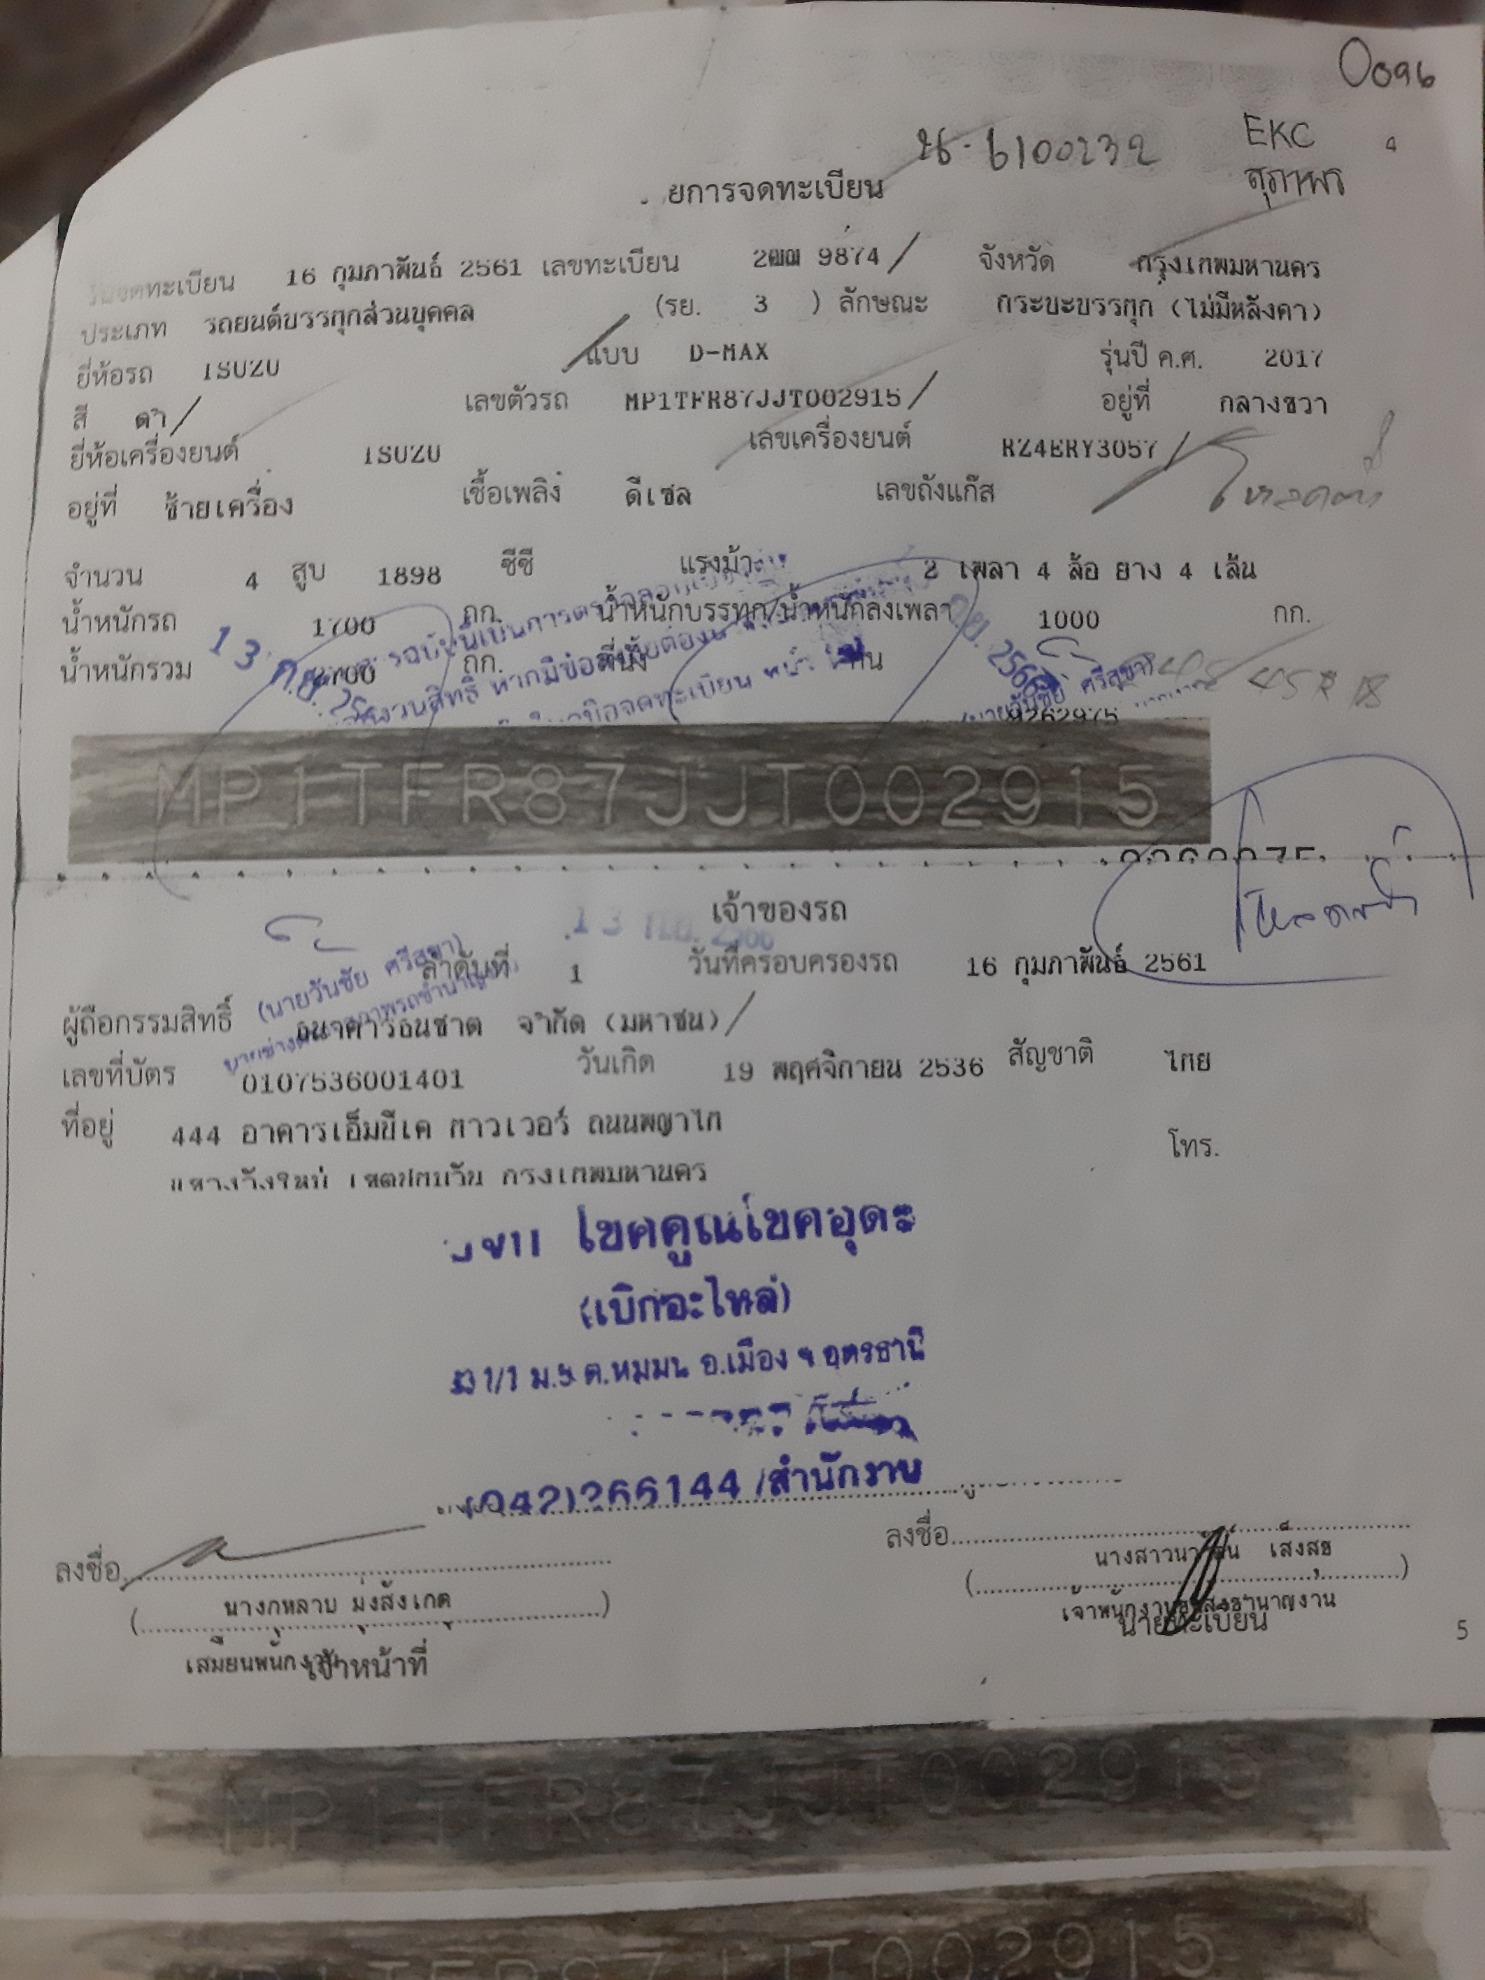 0096
EKC
สุภาพร
4
น-6100232
ยการจดทะเบียน
วันจดทะเบียน 16 กุมภาพันธ์ 2561 เลขทะเบียน 2ฒฌ 9874 จังหวัด กรุงเทพมหานคร
ประเภท รถยนต์บรรทุกส่วนบุคคล (รย. 3 ) ลักษณะ กระบะบรรทุก (ไม่มีหลังคา)
ยี่ห้อรถ ISUZU แบบ D-MAX รุ่นปี ค.ศ. 2017
สี ดำ เลขตัวรถ MP1TFR87JJT002915 อยู่ที่ กลางขวา
ยี่ห้อเครื่องยนต์ ISUZU เลขเครื่องยนต์ RZ4ERY3057
อยู่ที่ ซ้ายเครื่อง เชื้อเพลิง ดีเซล เลขถังแก๊ส
จำนวน 4 สูบ 1898 ซีซี แรงม้า 2 เพลา 4 ล้อ ยาง 4 เส้น
น้ำหนักรถ 1700 กก. น้ำหนักบรรทุก/น้ำหนักลงเพลา 1000 กก.
น้ำหนักรวม 2700 กก. ที่นั่ง คน
13 ก.ย.
(นายวันชัย ศรีสุขา)
9262975
MP1TFR87JJT002915
เจ้าของรถ
13 ก.ย. 2566
ลำดับที่ 1 วันที่ครอบครองรถ 16 กุมภาพันธ์ 2561
(นายวันชัย ศรีสุขา)
ผู้ถือกรรมสิทธิ์ ธนาคารธนชาต จำกัด (มหาชน)
เลขที่บัตร 0107536001401 วันเกิด 19 พฤศจิกายน 2536 สัญชาติ ไทย
ที่อยู่ 444 อาคารเอ็มบีเค ทาวเวอร์ ถนนพญาไท
โทร.
แขวงวังใหม่ เขตปทุมวัน กรุงเทพมหานคร
โชคคูณโชคอุดร
(เบิกอะไหล่)
1/1 ม.5 ต.หมูม่น อ.เมือง จ.อุดรธานี
(042)266144/สำนักงาน
ลงชื่อ ลงชื่อ
(นางกุหลาบ มุ่งสังเกต) เส็งสุธ
เสมียนพนักงาน เจ้าหน้าที่ นายทะเบียน
5
MP1TFR87JJT002915
MP1TFR87JJT002915